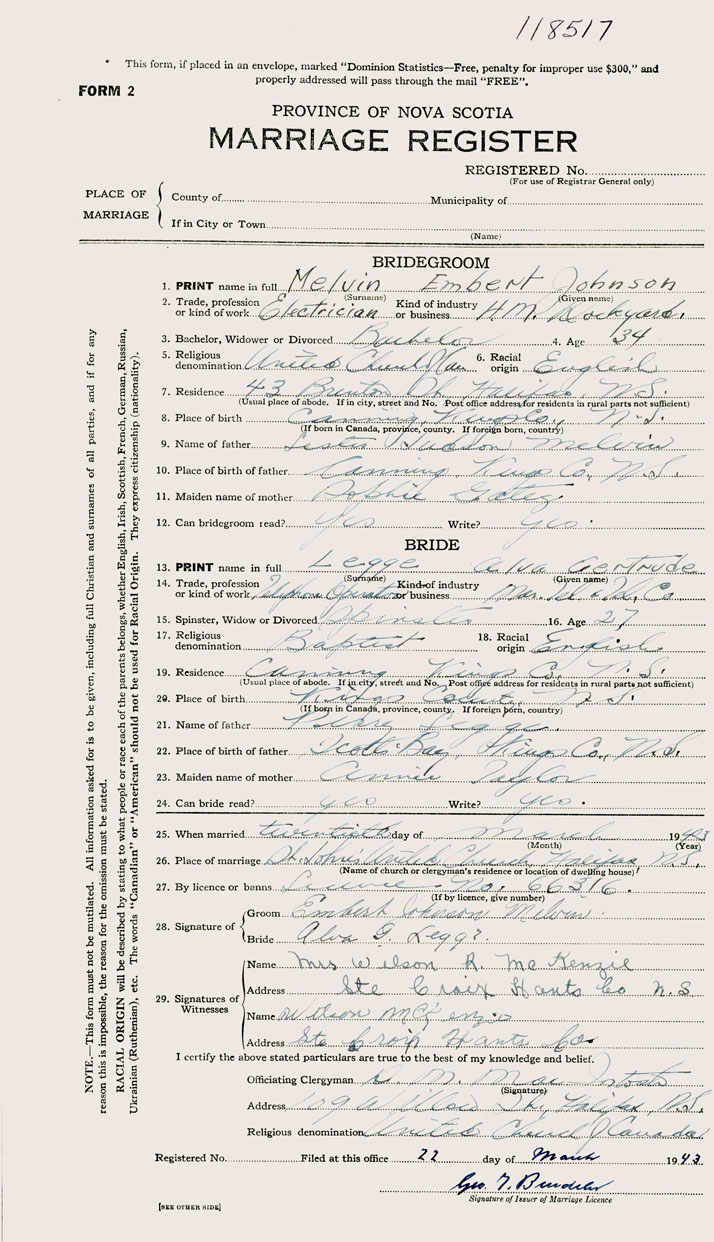 118517
This form, if placed in an envelope, marked "Dominion Statistics—Free, penalty for improper use $300," and
properly addressed will pass through the mail "FREE".
FORM 2
PROVINCE OF NOVA SCOTIA
MARRIAGE REGISTER
REGISTERED No.
(For use of Registrar General only)
PLACE OF MARRIAGE
County of Municipality of
If in City or Town
(Name)
BRIDEGROOM
1. PRINT name in full Melvin Embert Johnson
(Surname) (Given name)
2. Trade, profession or kind of work Electrician Kind of industry or business H.M. Dockyard.
3. Bachelor, Widower or Divorced Bachelor 4. Age 34
5. Religious denomination United Church Can. 6. Racial origin English
7. Residence 43 St. Halifax, N.S.
(Usual place of abode. If in city, street and No. Post office address for residents in rural parts not sufficient)
8. Place of birth Canning, Kings Co., N.S.
(If born in Canada, province, county. If foreign born, country)
9. Name of father Judson Melvin
10. Place of birth of father Canning Kings Co., N.S.
11. Maiden name of mother Sophie
12. Can bridegroom read? Yes Write? yes.
BRIDE
13. PRINT name in full Legge Alva Gertrude
(Surname) (Given name)
14. Trade, profession or kind of work Telephone Operator Kind of industry or business Mar. Tel & Tel. Co
15. Spinster, Widow or Divorced Spinster 16. Age 27
17. Religious denomination Baptist 18. Racial origin English
19. Residence Canning Kings Co., N.S.
(Usual place of abode. If in city, street and No. Post office address for residents in rural parts not sufficient)
20. Place of birth Kings County, N.S.
(If born in Canada, province, county. If foreign born, country)
21. Name of father Legge.
22. Place of birth of father Scotts Bay, Kings Co., N.S.
23. Maiden name of mother Annie Taylor
24. Can bride read? yes Write? yes.
25. When married twentieth day of March 1943
(Month) (Year)
26. Place of marriage St. John's United Church, Halifax N.S.
(Name of church or clergyman's residence or location of dwelling house)
27. By licence or banns Licence No. 66316.
(If by licence, give number)
28. Signature of
Groom Embert Johnson Melvin.
Bride Alva G. Legge.
29. Signatures of Witnesses
Name Mrs Wilson R. McKenzie
Address Ste Croix Hants Co N.S
Name Wilson McKenzie
Address Ste Croix Hants Co.
I certify the above stated particulars are true to the best of my knowledge and belief.
Officiating Clergyman D. M. MacIntosh
(Signature)
Address 109 Willow St., Halifax, N.S.
Religious denomination United Church of Canada
Registered No. Filed at this office 22 day of March 1943
Geo. T.
Signature of Issuer of Marriage Licence
[SEE OTHER SIDE]
NOTE.—This form must not be mutilated. All information asked for is to be given, including full Christian and surnames of all parties, and if for any
reason this is impossible, the reason for the omission must be stated.
RACIAL ORIGIN will be described by stating to what people or race each of the parents belongs, whether English, Irish, Scottish, French, German, Russian,
Ukrainian (Ruthenian), etc. The words "Canadian" or "American" should not be used for Racial Origin. They express citizenship (nationality).